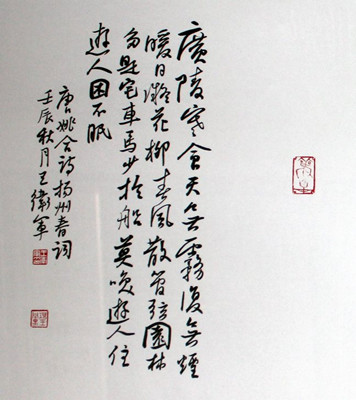 廣陵寒食天無霧復無煙
暖日凝花柳春風散管弦園林
多是宅車馬少於船莫喚遊人住
遊人困不眠
唐姚合詩揚州春詞
壬辰秋月王衛軍